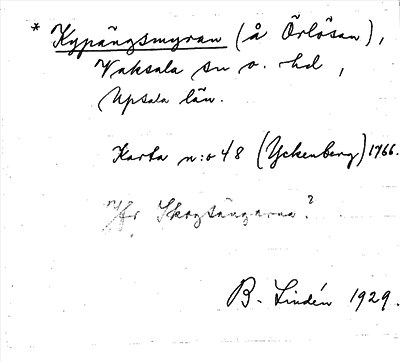 * Kypängsmyran (å Örlösan),
Vaksala sn o. hd,
Upsala län.
Karta n:o 48 (Yckenberg) 1766.
Jfr Skogtängarna?
B. Lindén 1929.